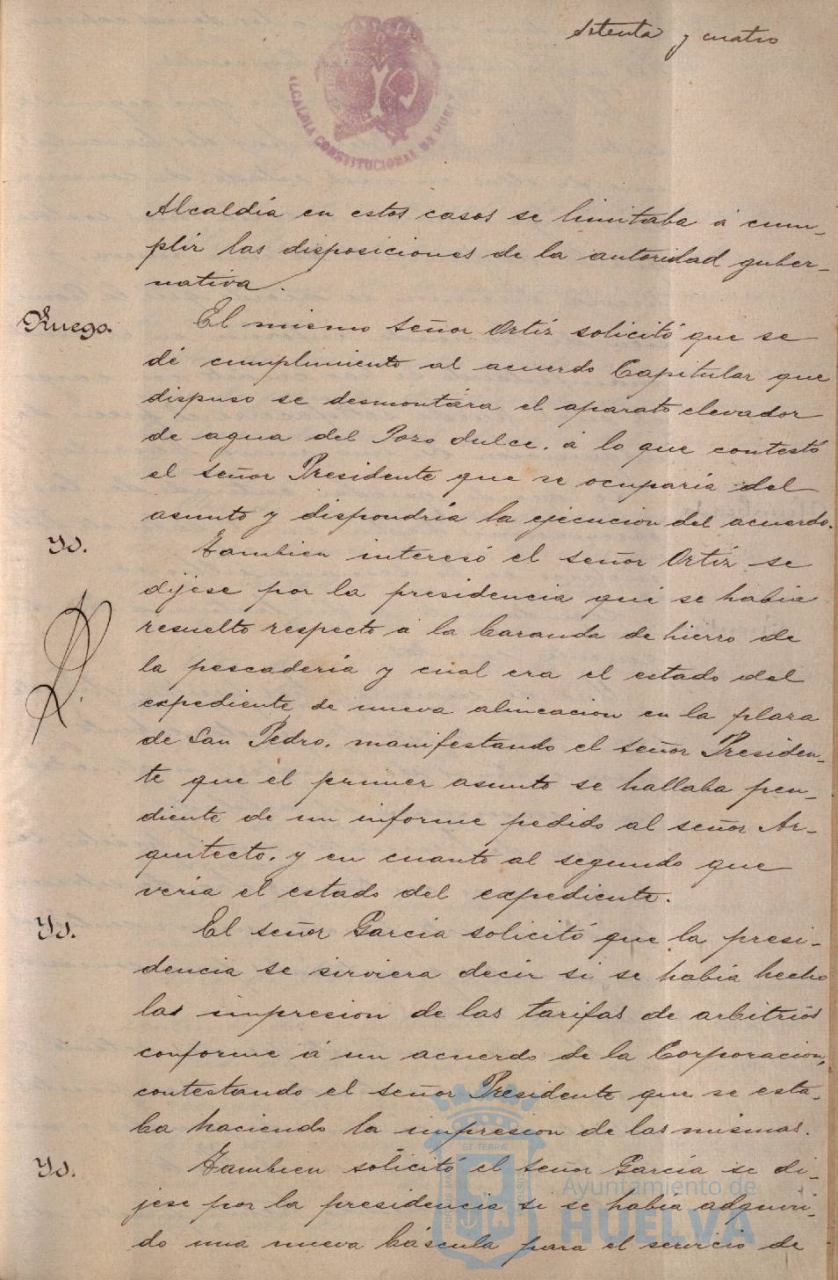 Setenta y cuatro
ALCALDIA CONSTITUCIONAL DE HUELVA
Alcaldía en estos casos se limitaba á cum-
plir las disposiciones de la autoridad guber-
nativa.
Ruego.
El mismo señor Ortiz solicitó que se
dé cumplimiento al acuerdo Capitular que
dispuso se desmontára el aparato elevador
de agua del Pozo dulce, á lo que contestó
el señor Presidente que se ocuparía del
asunto y dispondría la ejecucion del acuerdo.
Yd.
Tambien interesó el señor Ortiz se
dijese por la presidencia que se había
resuelto respecto á la baranda de hierro de
la pescadería y cual era el estado del
expediente de nueva alineacion en la plaza
de San Pedro, manifestando el señor Presiden-
te que el primer asunto se hallaba pen-
diente de un informe pedido al señor Ar-
quitecto, y en cuanto al segundo que
vería el estado del expediente.
Yd.
El señor García solicitó que la presi-
dencia se sirviera decir si se había hecho
las impresion de las tarifas de arbitrios
conforme á un acuerdo de la Corporacion,
contestando el señor Presidente que se esta-
ba haciendo la impresion de las mismas.
Yd.
Tambien solicitó el señor García se di-
jese por la presidencia si se había adquiri-
do una nueva báscula para el servicio de
Ayuntamiento de
HUELVA